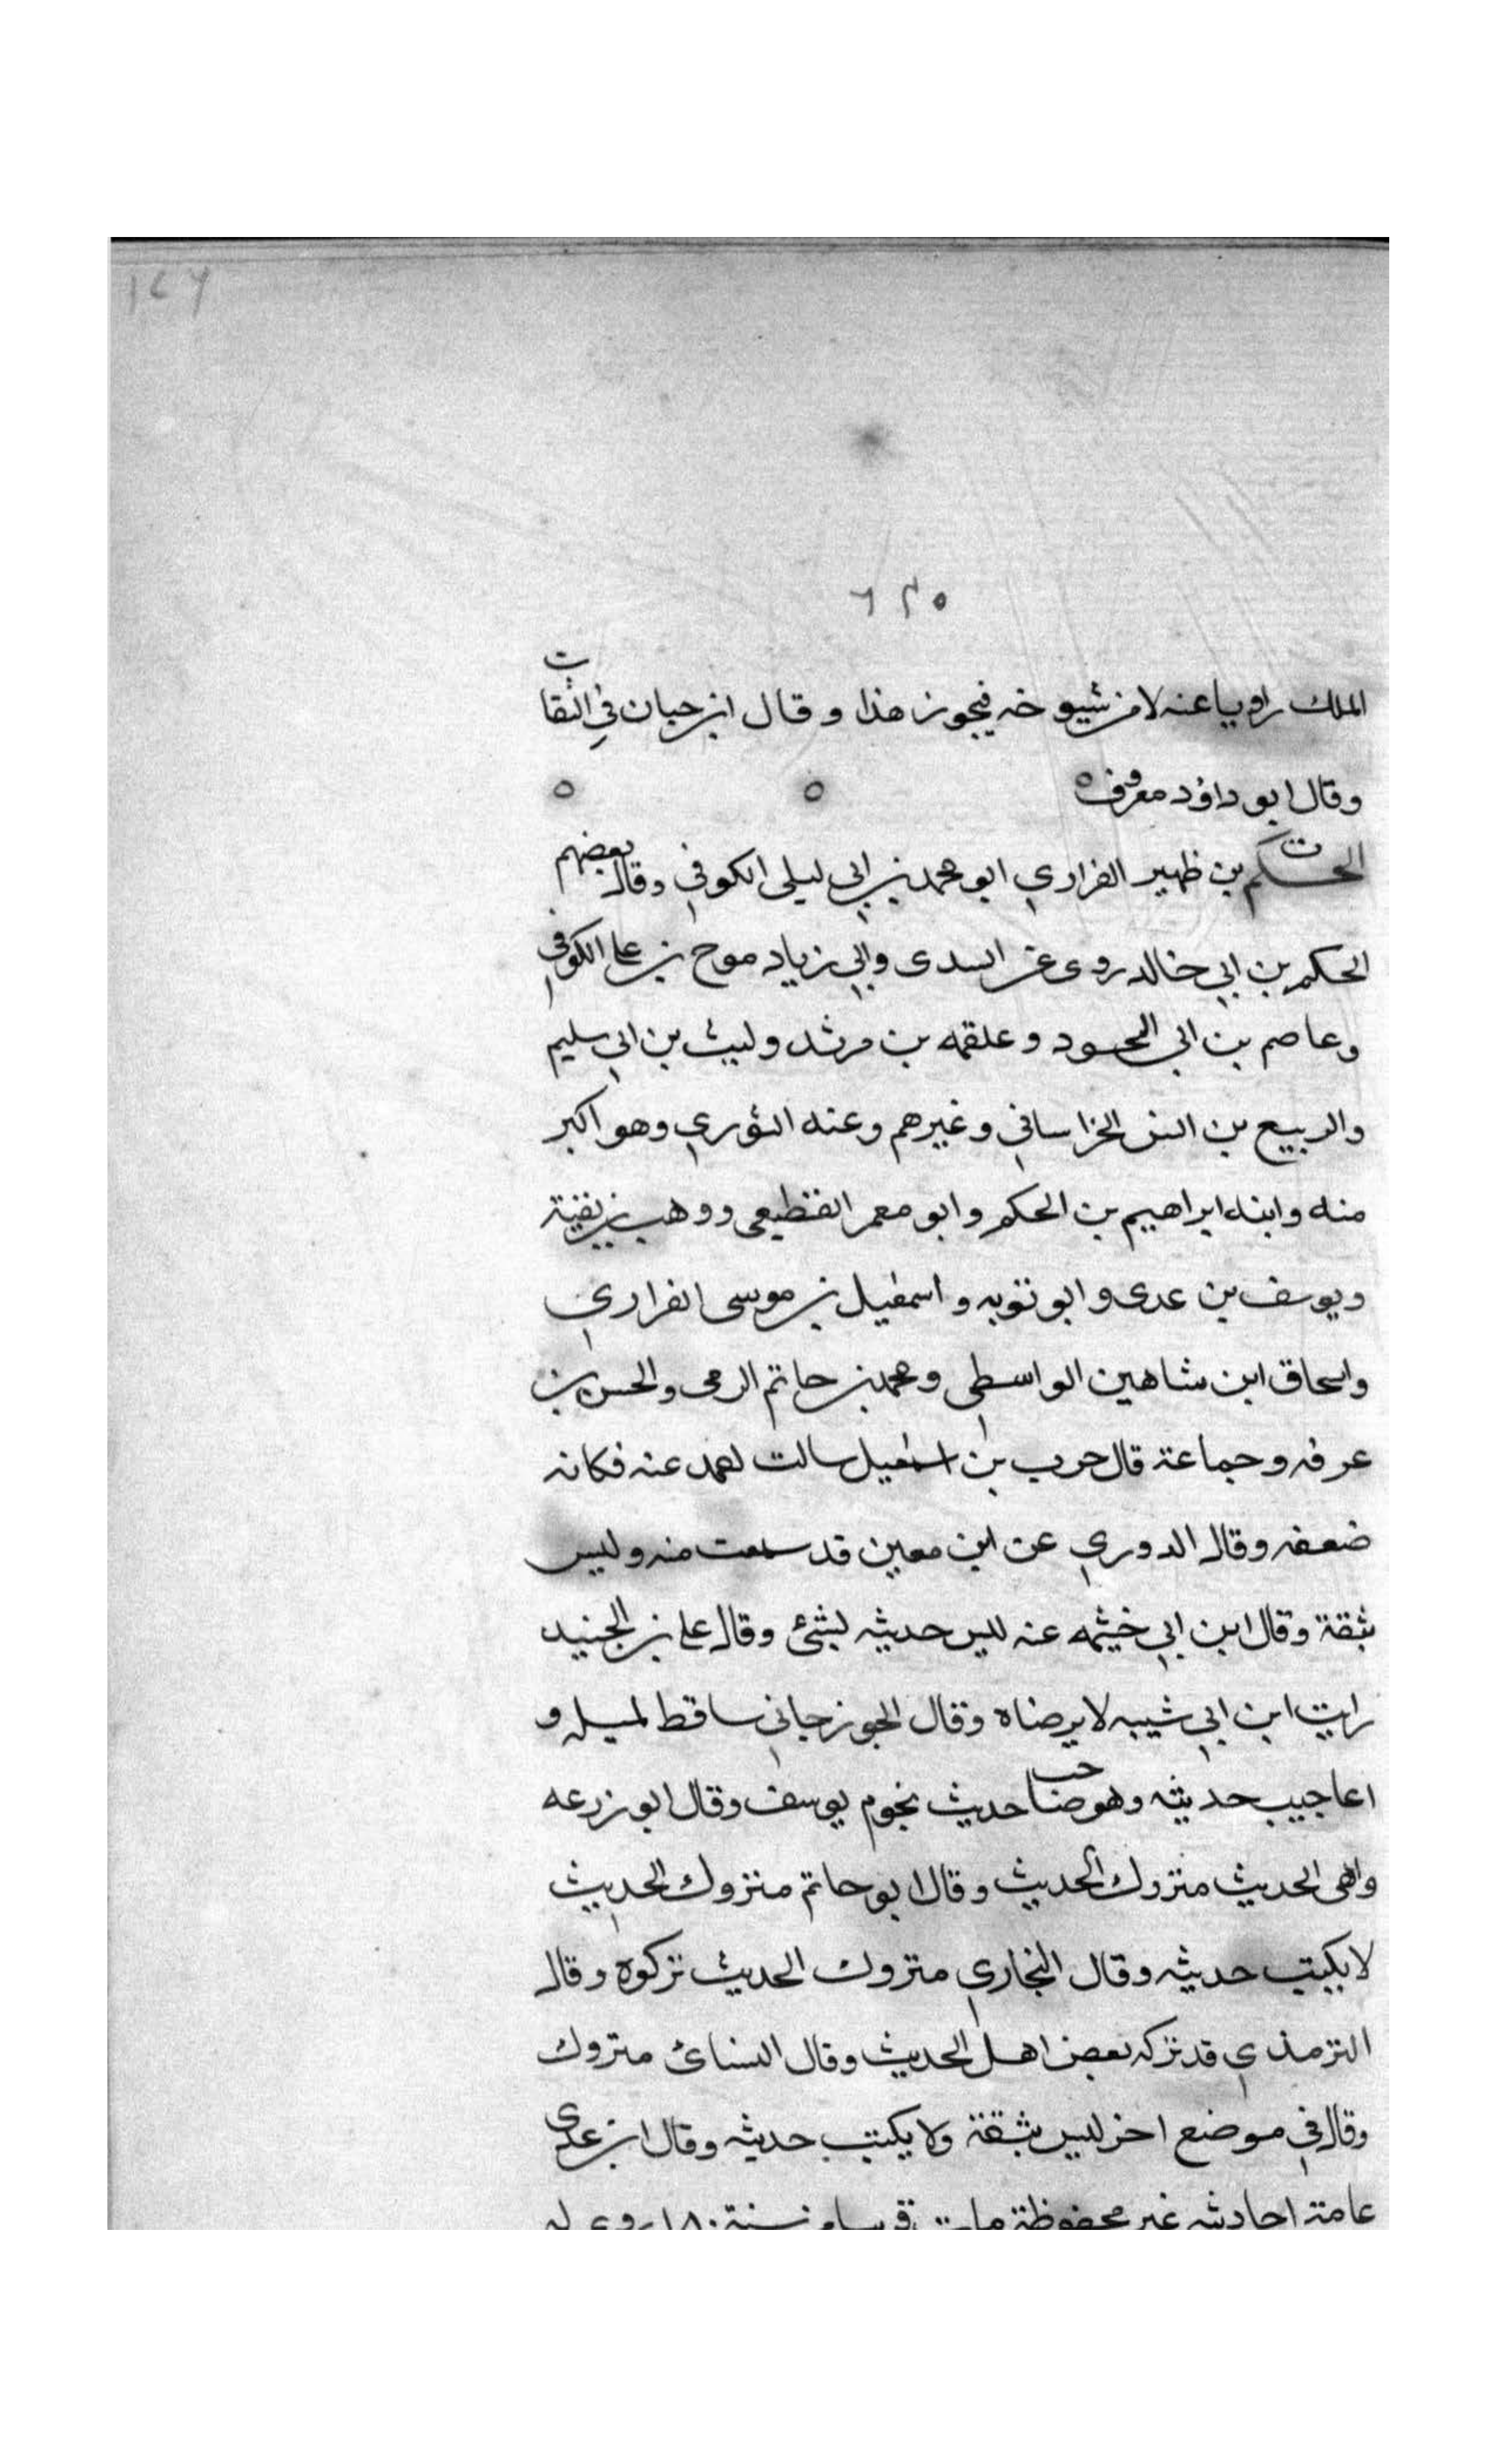 ١٤٦
٦٢٥
الملك راويا عنه لا من شيوخه فيجوز هذا وقال ابن حبان في الثقات
وقال ابو داؤد معروف ه ه ه
ت
الحكم بن ظهير الفزاري ابو محمد بن ابي ليلى الكوفي وقال بعضهم
الحكم بن ابي خالد روى عن السدى وابي زياد موح بن علي الكوفي
وعاصم بن ابي النجود وعلقمه بن مرثد وليث بن ابي سليم
والربيع بن انس الخراساني وغيرهم وعنه الثوري وهو اكبر
منه وابنه ابراهيم بن الحكم وابو معمر القطيعى ووهب بن بقية
ويوسف بن عدى وابو توبه واسمعيل بن موسى الفزاري
واسحاق ابن شاهين الواسطى ومحمد بن حاتم الزمى والحسن بن
عرفه وجماعة قال حرب بن اسمعيل سالت احمد عنه فكانه
ضعفه وقال الدوري عن ابن معين قد سمعت منه وليس
بثقة وقال ابن ابي خيثمه عنه ليس حديثه بشئ وقال علي بن الجنيد
رايت ابن ابي شيبه لا يرضاه وقال الجوزجاني ساقط لميله و
اعاجيب حديثه وهو صاحب حديث نجوم يوسف وقال ابو زرعه
واهى الحديث متروك الحديث وقال ابو حاتم متروك الحديث
لا يكتب حديثه وقال البخاري متروك الحديث تركوه وقال
الترمذي قد تركه بعض اهل الحديث وقال النسائ متروك
وقال في موضع اخر ليس بثقة ولا يكتب حديثه وقال ابن عدى
عامة احاديثه غير محفوظة مات قريبا من سنة ١٨٠ روى له